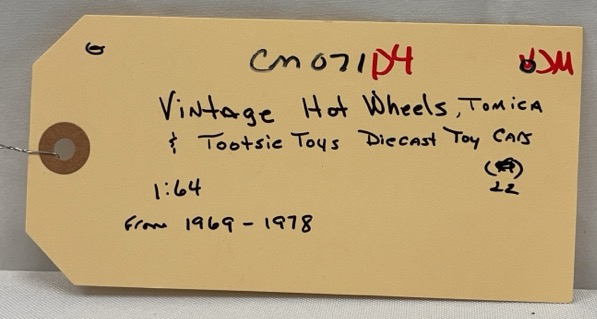 CM071D4
Vintage Hot Wheels, Tomica
& Tootsie Toys Diecast Toy Cars
1:64
22
From 1969 - 1978